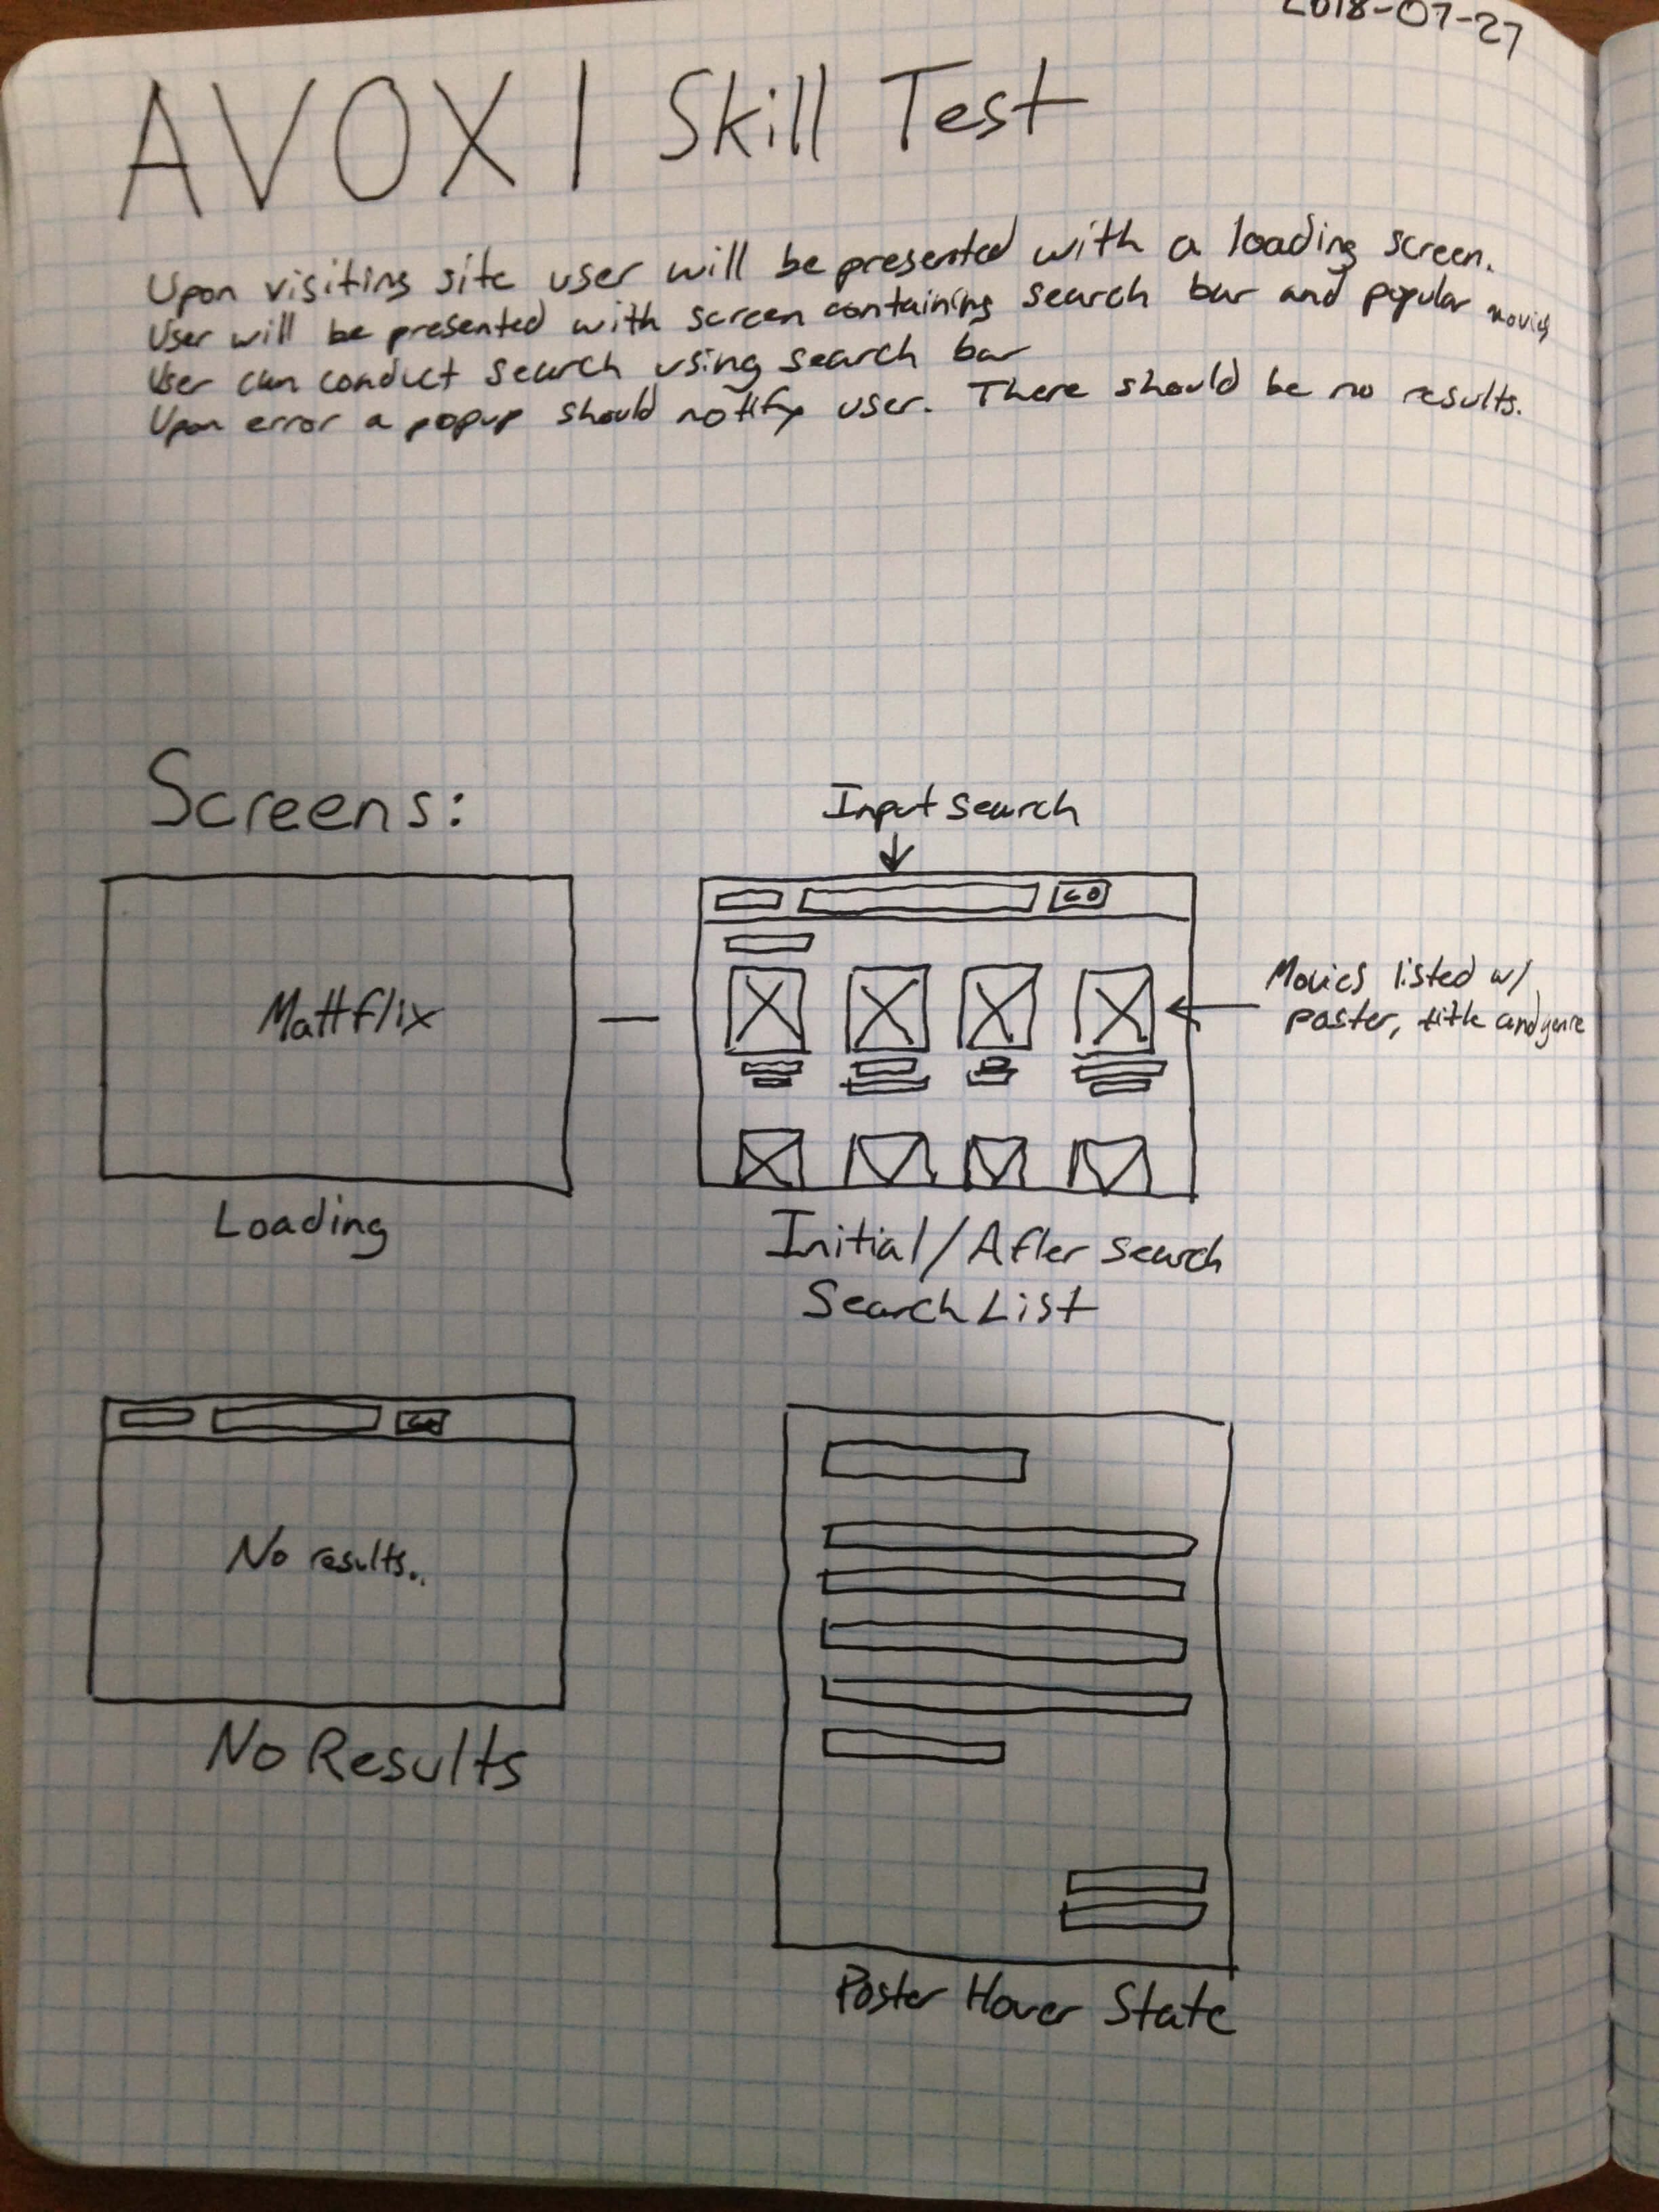 2018-07-27
AVOXI Skill Test
Upon visiting site user will be presented with a loading screen.
User will be presented with screen containing search bar and popular movies
User can conduct search using search bar
Upon error a popup should notify user. There should be no results.
Screens:
Input search
GO
Mattflix
Movies listed w/
poster, title and genre
Loading
Initial/After search
Search List
GO
No results..
No Results
Poster Hover State